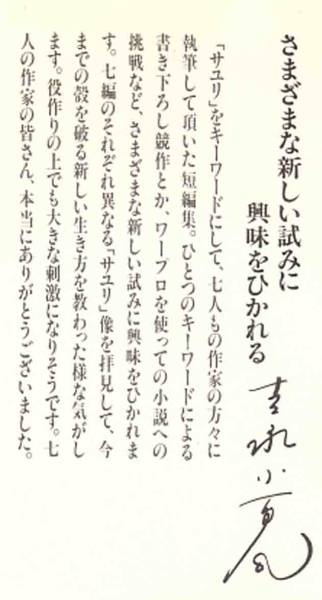 さまざまな新しい試みに
興味をひかれる
吉永小百合
「サユリ」をキーワードにして、七人もの作家の方々に
執筆して頂いた短編集。ひとつのキーワードによる
書き下ろし競作とか、ワープロを使っての小説への
挑戦など、さまざまな新しい試みに興味をひかれま
す。七編のそれぞれ異なる「サユリ」像を拝見して、今
までの殻を破る新しい生き方を教わった様な気がし
ます。役作りの上でも大きな刺激になりそうです。七
人の作家の皆さん、本当にありがとうございました。